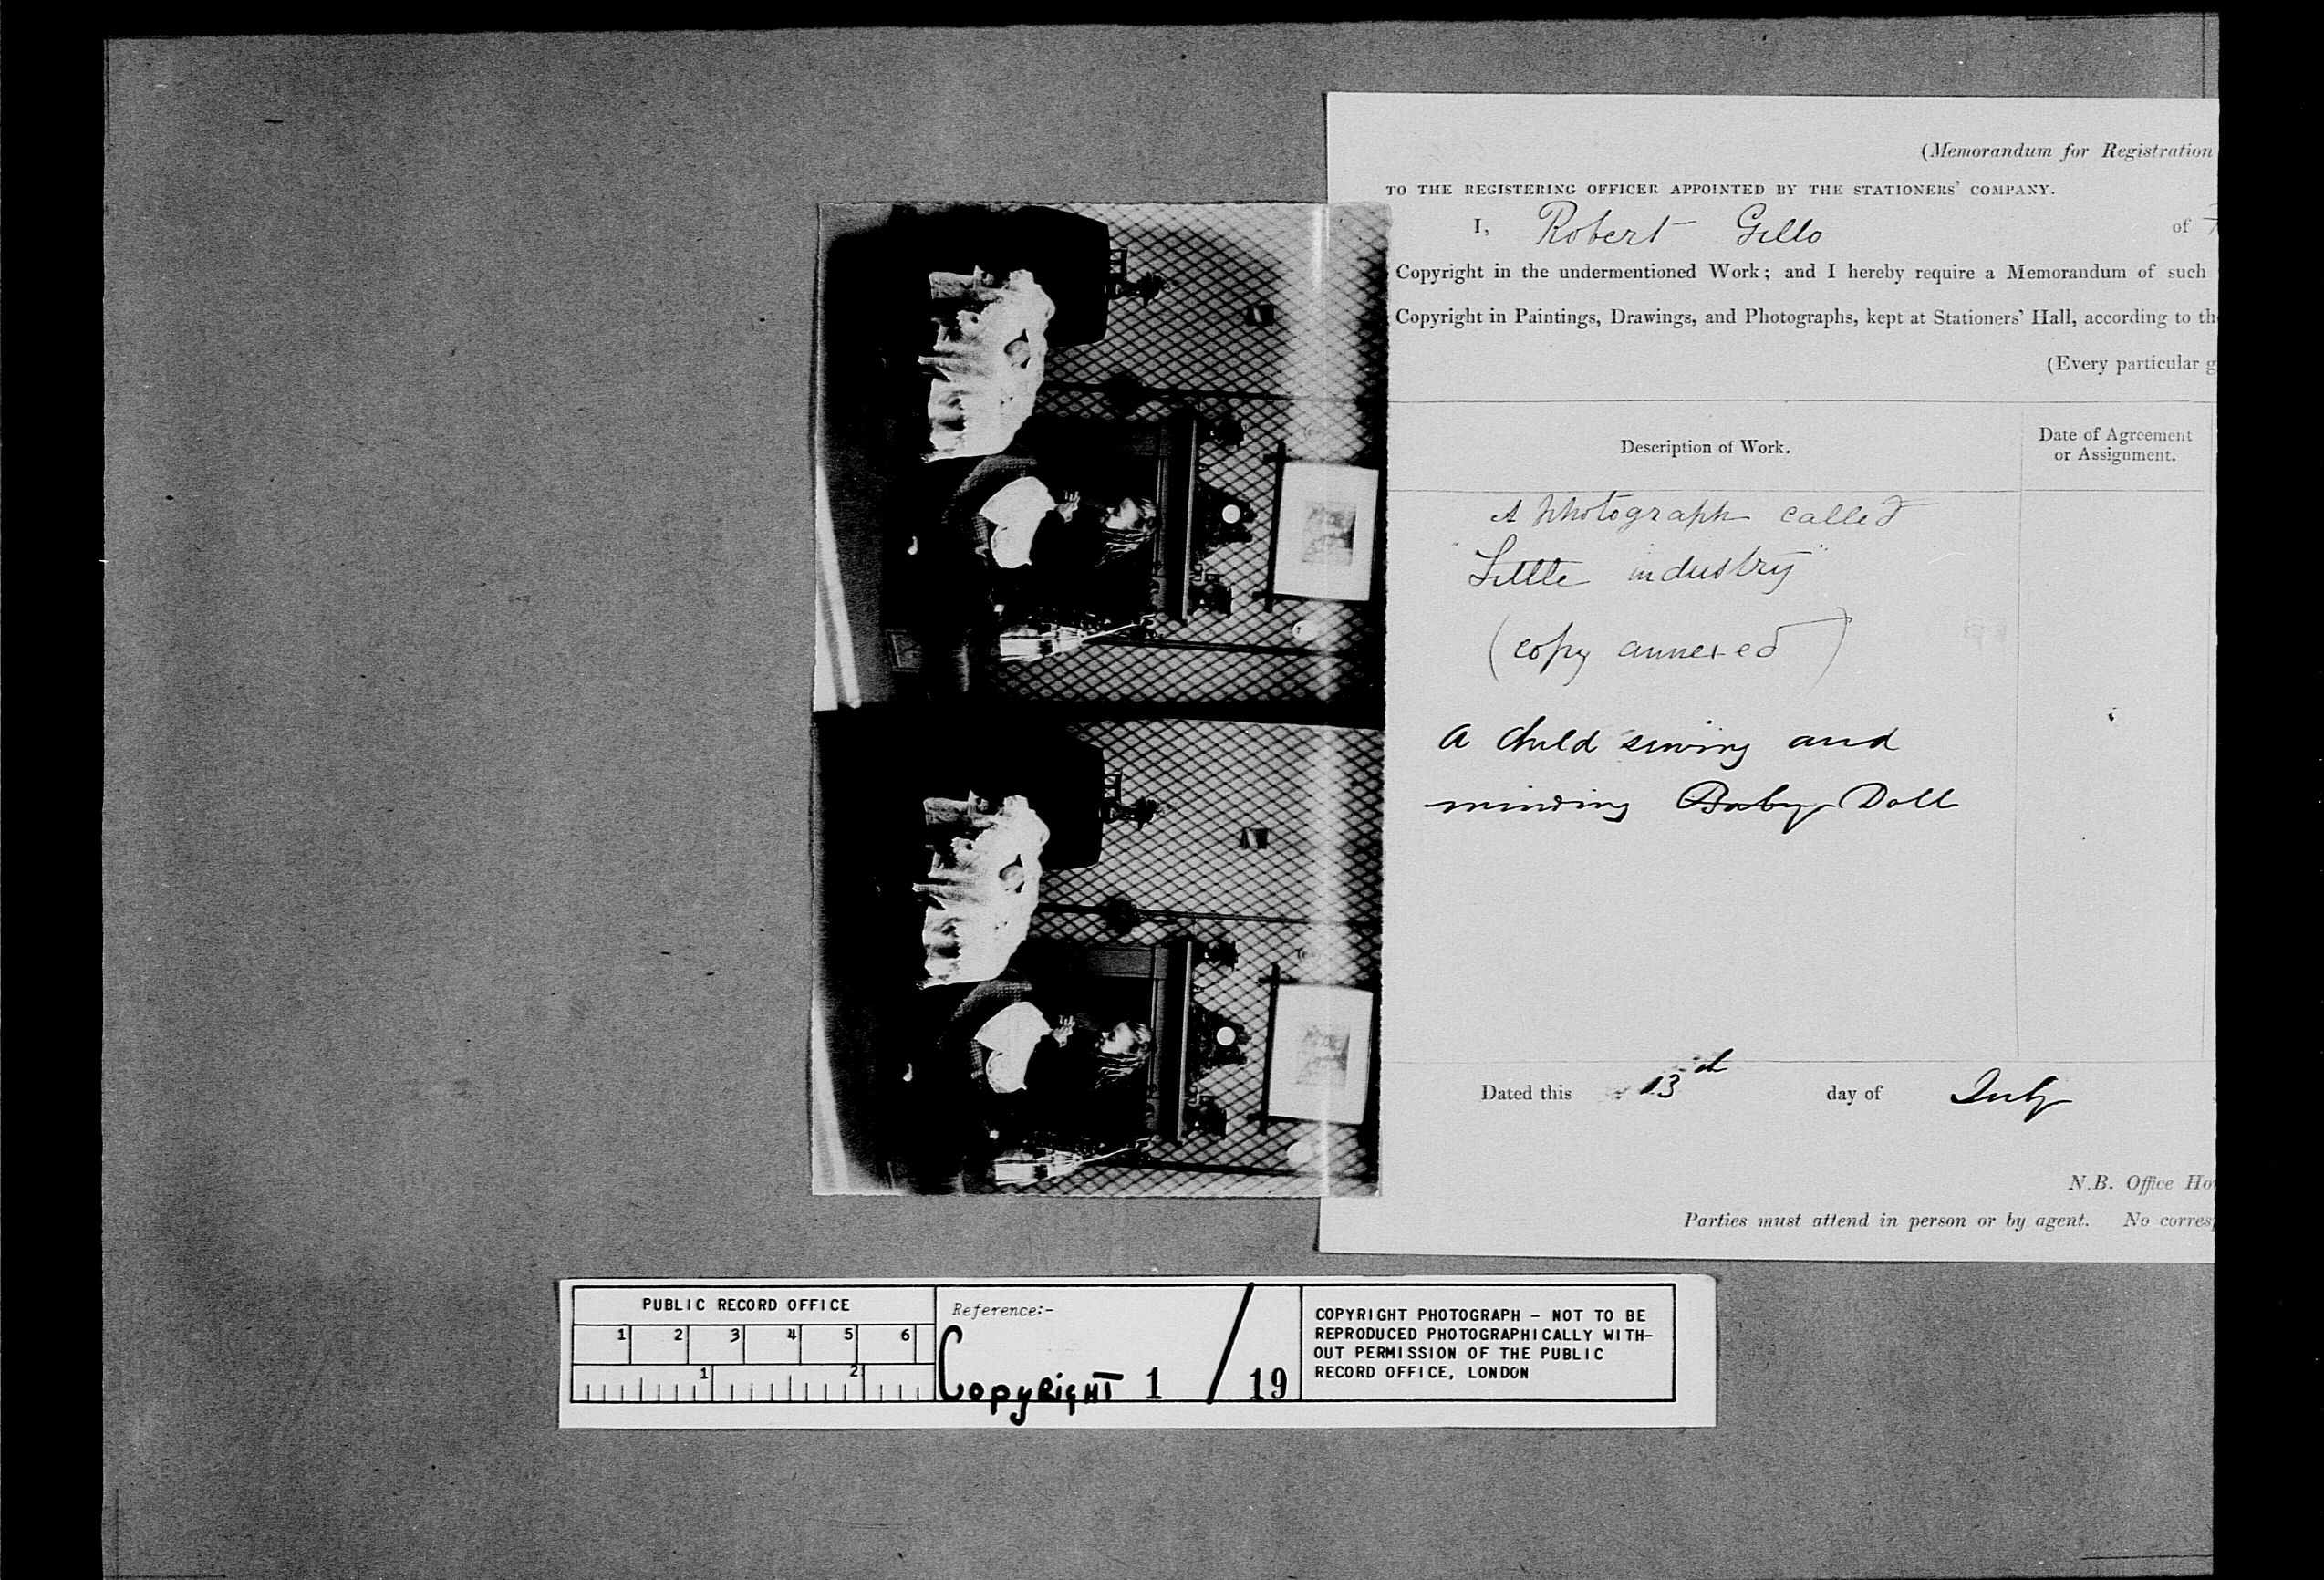 (Memorandum for Registration
TO THE REGISTERING OFFICER APPOINTED BY THE STATIONERS' COMPANY.
I, Robert Gillo of
Copyright in the undermentioned Work; and I hereby require a Memorandum of such
Copyright in Paintings, Drawings, and Photographs, kept at Stationers' Hall, according to th
(Every particular g
Description of Work.
Date of Agreement
or Assignment.
A photograph called
"Little industry"
(copy annexed)
A Child sewing and
minding Baby Doll
Dated this 13th day of July
N.B. Office Ho
Parties must attend in person or by agent. No corres
PUBLIC RECORD OFFICE
1 2 3 4 5 6
1 2
Reference:-
Copyright 1 / 19
COPYRIGHT PHOTOGRAPH - NOT TO BE
REPRODUCED PHOTOGRAPHICALLY WITH-
OUT PERMISSION OF THE PUBLIC
RECORD OFFICE, LONDON